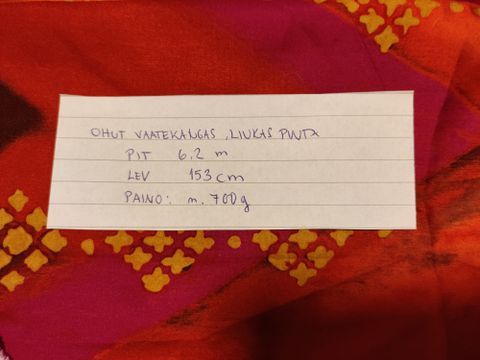 OHUT VAATEKANGAS, LIUKAS PINTA
PIT 6,2 m
LEV 153 cm
PAINO: n. 700g